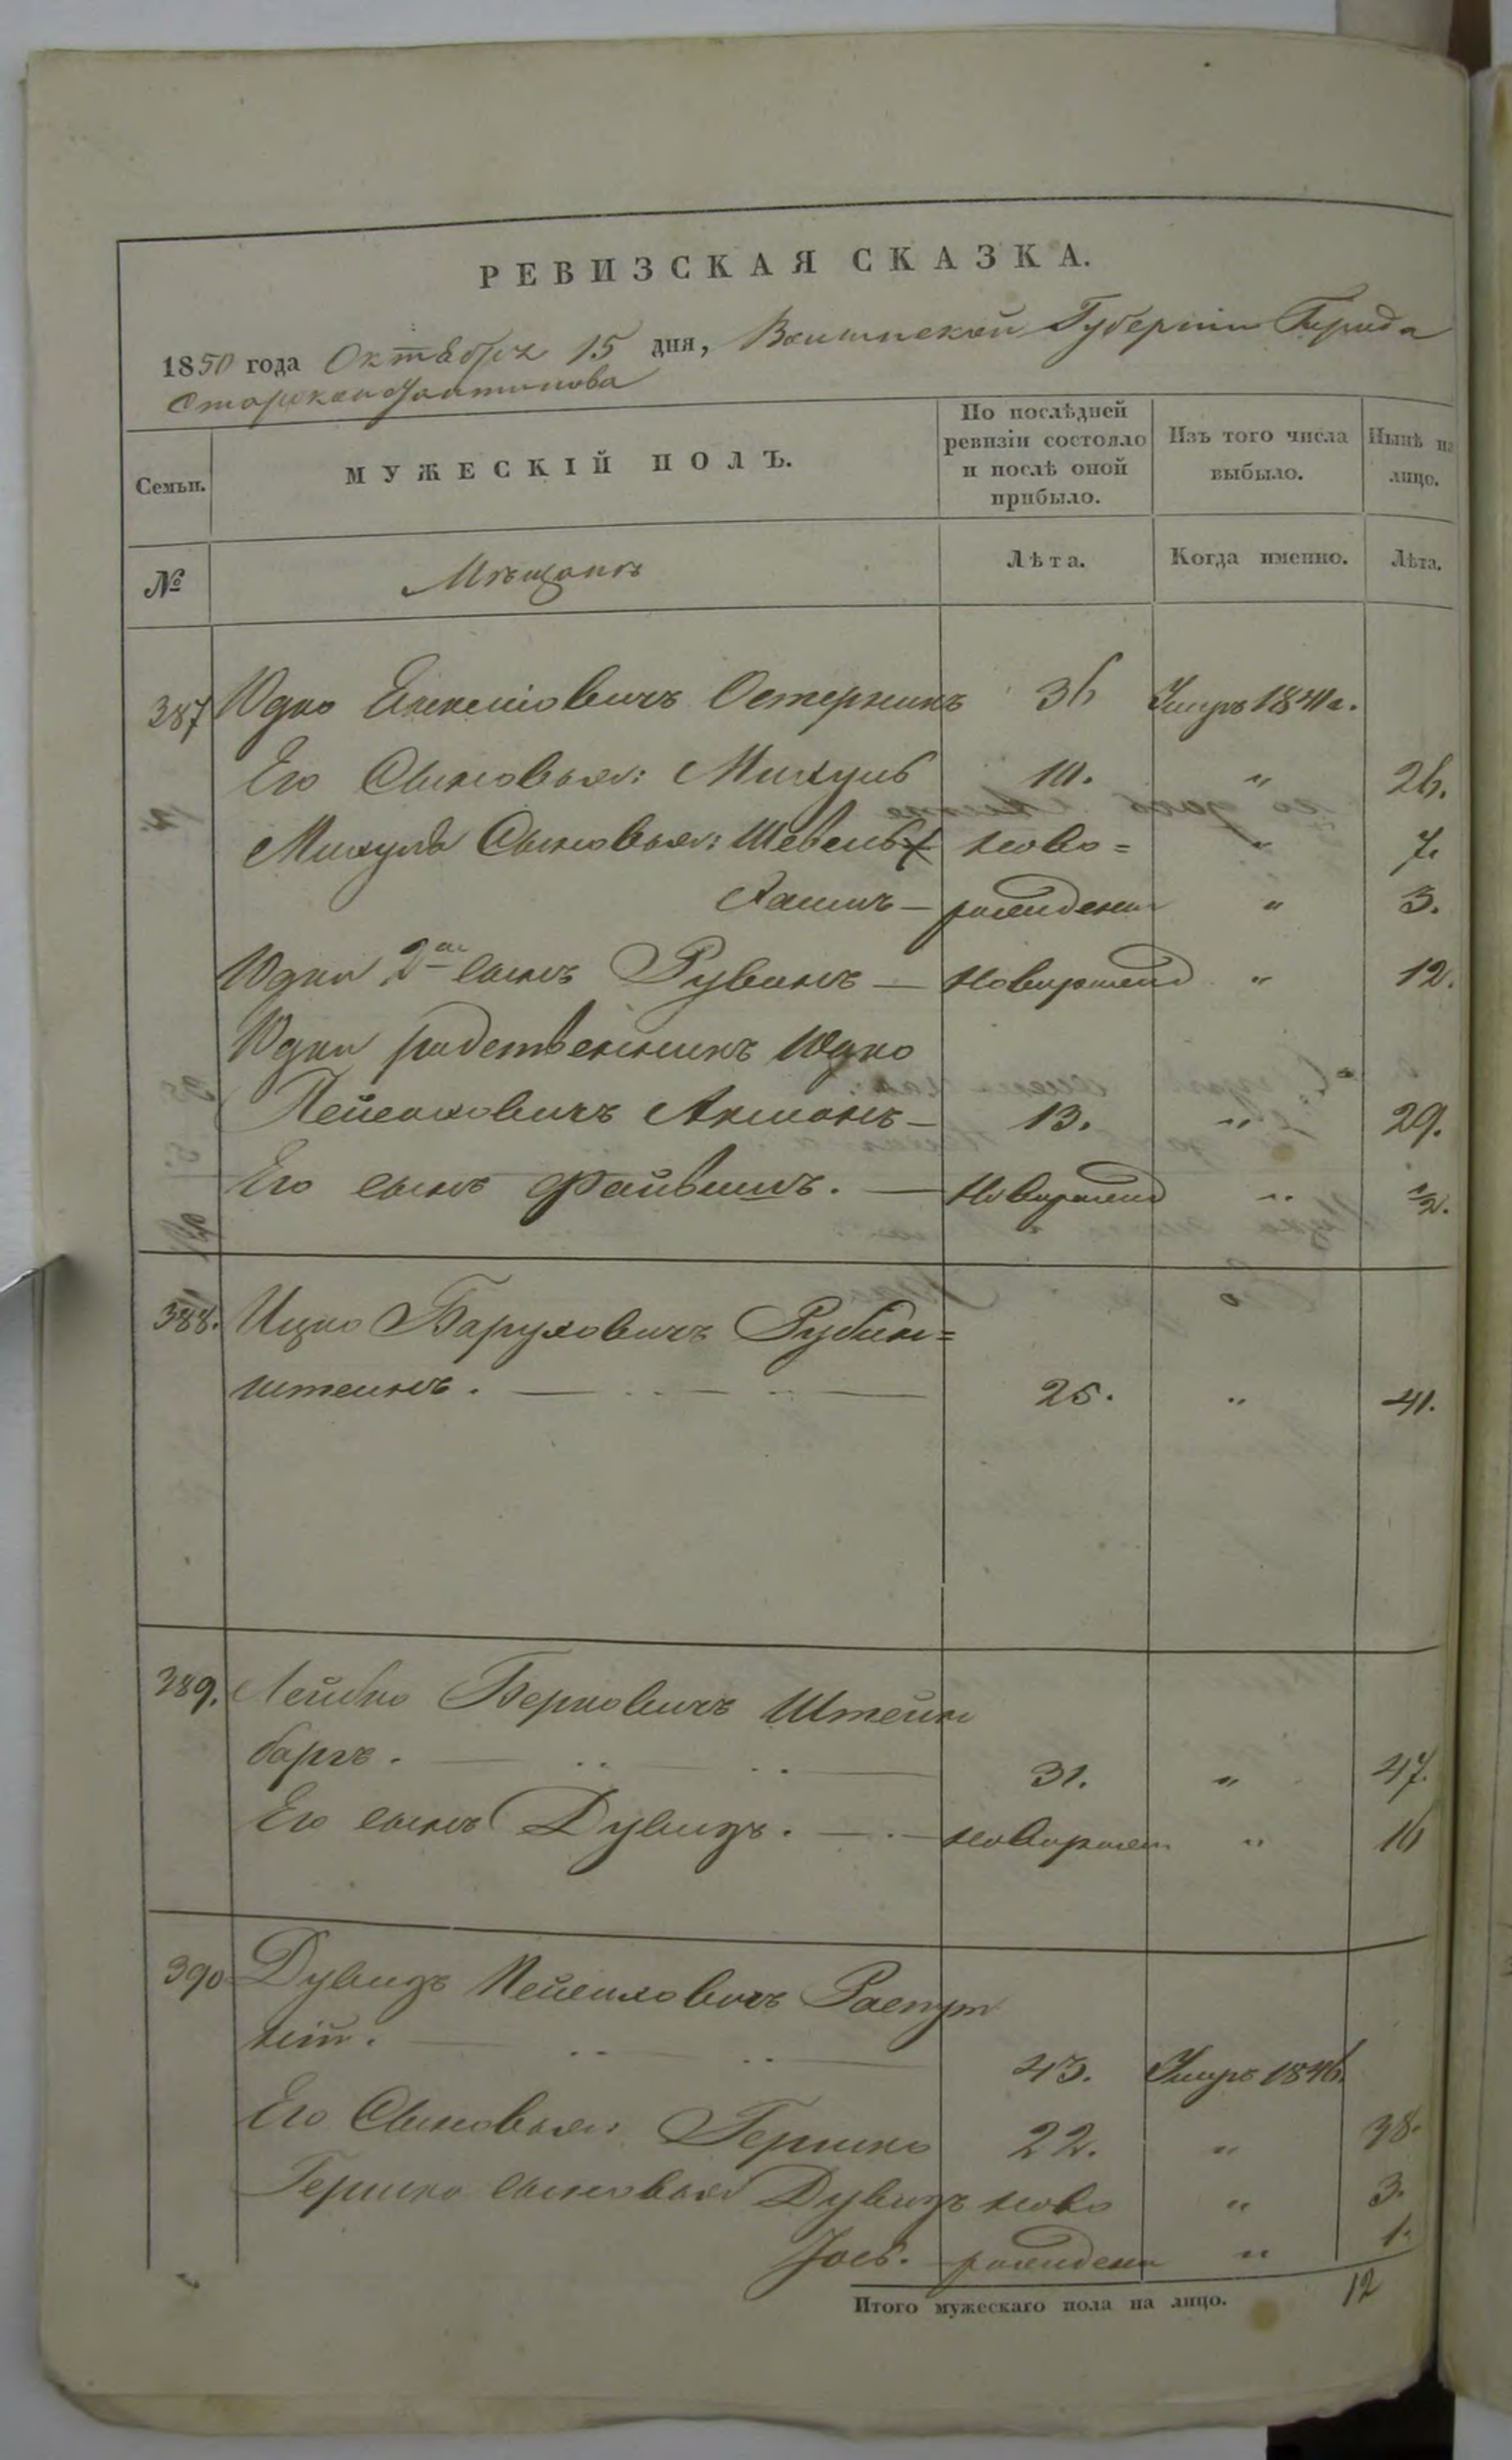 РЕВИЗСКАЯ СКАЗКА.
1850 года Октября 15 дня, Волынской Губернии Города
Староконстантинова
Семьи. МУЖЕСКІЙ ПОЛЪ. По послѣдней ревизіи состояло и послѣ оной прибыло. Изъ того числа выбыло. Нынѣ на лицо.
№ Мѣщанъ Лѣта. Когда именно. Лѣта.
387 Юдко Остерникъ 36 Умеръ 1841 г.
Его Сыновья: Михуль 10. " 26.
Михуля Сыновья: Шевель ново= " 7.
Хаимъ — рожденн " 3.
Юдки 2й сынъ Рувинъ — Новорожд " 12.
Юдки родственникъ Юдко
Пейсаховичъ Акманъ — 13. " 29.
Его сынъ Файвишъ. — Новорожд " 1/2.
388. Ицко Баруховичъ Рубин=
штейнъ. — 25. " 41.
389. Лейбко Берковичъ Штейн
баргъ. — 31. " 47.
Его сынъ Дувидъ. — новорожд " 16
390 Дувидъ Пейсаховичъ
43. Умеръ 1846.
Его Сыновья: Гершко 22. " 38.
Гершко сыновья Дувидъ ново " 3.
Іось. — рожденн " 1.
Итого мужескаго пола на лицо. 12